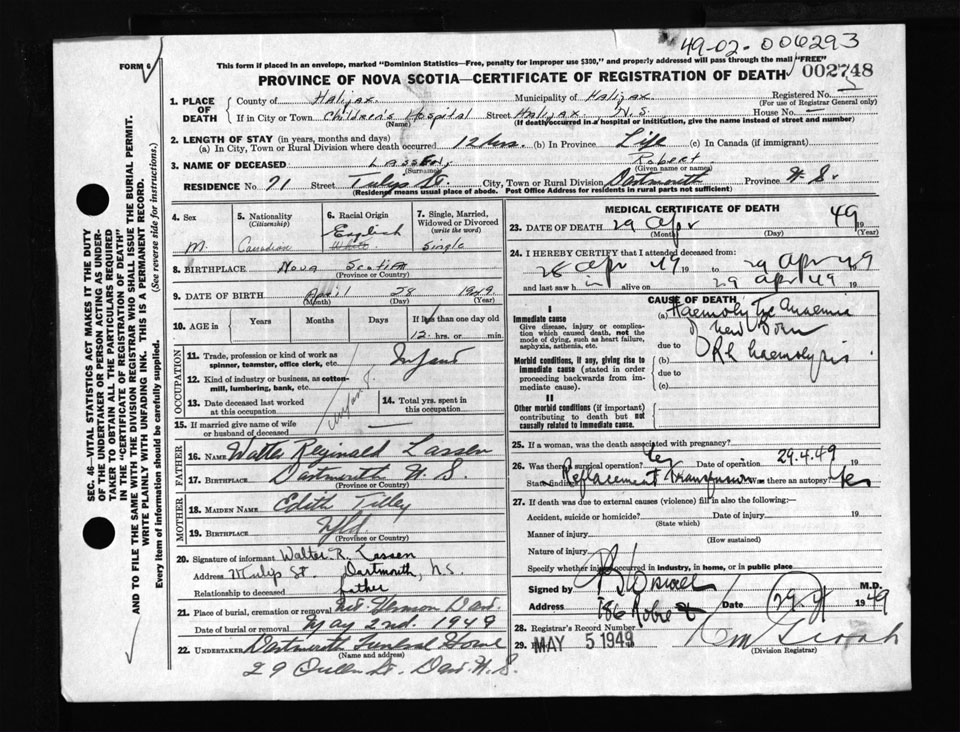 49-02-006293
FORM 6
This form if placed in an envelope, marked "Dominion Statistics—Free, penalty for improper use $300," and properly addressed will pass through the mail "FREE"
PROVINCE OF NOVA SCOTIA—CERTIFICATE OF REGISTRATION OF DEATH
002748
1. PLACE OF DEATH
County of Halifax Municipality of Halifax Registered No.
(For use of Registrar General only)
If in City or Town Children's Hospital Street Halifax N.S House No. –
(Name) (If death occurred in a hospital or institution, give the name instead of street and number)
2. LENGTH OF STAY (in years, months and days)
(a) In City, Town or Rural Division where death occurred 12 hrs. (b) In Province Life (c) In Canada (if immigrant)
3. NAME OF DECEASED Lassen, Robert
(Surname) (Given name or names)
RESIDENCE No 71 Street Tulip St. City, Town or Rural Division Dartmouth Province N.S.
(Residence means usual place of abode. Post Office Address for residents in rural parts not sufficient)
4. Sex
M.
5. Nationality (Citizenship)
Canadian
6. Racial Origin
English
White
7. Single, Married, Widowed or Divorced (write the word)
Single
8. BIRTHPLACE Nova Scotia
(Province or Country)
9. DATE OF BIRTH April 28 1949
(Month) (Day) (Year)
10. AGE in Years Months Days If less than one day old
12 hrs. or min.
OCCUPATION
11. Trade, profession or kind of work as spinner, teamster, office clerk, etc. Infant
12. Kind of industry or business, as cotton-mill, lumbering, bank, etc.
Infant
13. Date deceased last worked at this occupation
14. Total yrs. spent in this occupation
15. If married give name of wife or husband of deceased
FATHER
16. NAME Walter Reginald Lassen
17. BIRTHPLACE Dartmouth N.S.
(Province or Country)
MOTHER
18. MAIDEN NAME Edith Tilley
19. BIRTHPLACE Nfld.
(Province or Country)
20. Signature of informant Walter R. Lassen
Address 71 Tulip St. Dartmouth, N.S.
Relationship to deceased father
21. Place of burial, cremation or removal Mt. Hermon Dart.
Date of burial or removal May 2nd. 1949
22. UNDERTAKER Dartmouth Funeral Home
(Name and address)
29 Queen St. Dart N.S.
MEDICAL CERTIFICATE OF DEATH
23. DATE OF DEATH 29 Apr 1949
(Month) (Day) (Year)
24. I HEREBY CERTIFY that I attended deceased from:
28 Apr 49 19 to 29 Apr 49 19
and last saw h im alive on 29 apr 49 19
CAUSE OF DEATH
I
Immediate cause
Give disease, injury or complication which caused death, not the mode of dying, such as heart failure, asphyxia, asthenia, etc.
(a) Haemolytic Anaemia of new born
due to
Morbid conditions, if any, giving rise to immediate cause (stated in order proceeding backwards from immediate cause).
(b) Rh haemolysis.
due to
(c)
II
Other morbid conditions (if important) contributing to death but not causally related to immediate cause.
25. If a woman, was the death associated with pregnancy?
26. Was there a surgical operation? Yes Date of operation 29.4.49
State findings Replacement transfusion Was there an autopsy? Yes
27. If death was due to external causes (violence) fill in also the following:—
Accident, suicide or homicide? Date of injury 19
(State which)
Manner of injury
(How sustained)
Nature of injury
Specify whether injury occurred in industry, in home, or in public place
Signed by M.D.
Address 186 Robie St Date 29.4 1949
28. Registrar's Record Number
29. MAY 5 1949
(Division Registrar)
SEC. 46—VITAL STATISTICS ACT MAKES IT THE DUTY
OF THE UNDERTAKER OR PERSON ACTING AS UNDERTAKER TO OBTAIN ALL THE PARTICULARS REQUIRED
IN THE "CERTIFICATE OF REGISTRATION OF DEATH"
AND TO FILE THE SAME WITH THE DIVISION REGISTRAR WHO SHALL ISSUE THE BURIAL PERMIT.
WRITE PLAINLY WITH UNFADING INK. THIS IS A PERMANENT RECORD.
Every item of information should be carefully supplied. (See reverse side for instructions.)